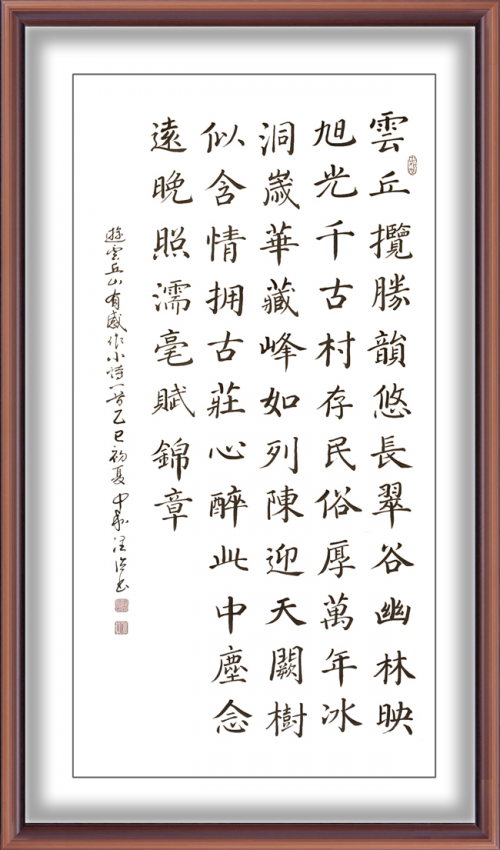 雲丘攬勝韻悠長翠谷幽林映
旭光千古村存民俗厚萬年冰
洞嵗華藏峰如列陳迎天闕樹
似含情拥古莊心醉此中塵念
遠晚照濡毫賦錦章
遊雲丘山有感作小詩一首乙巳初夏中